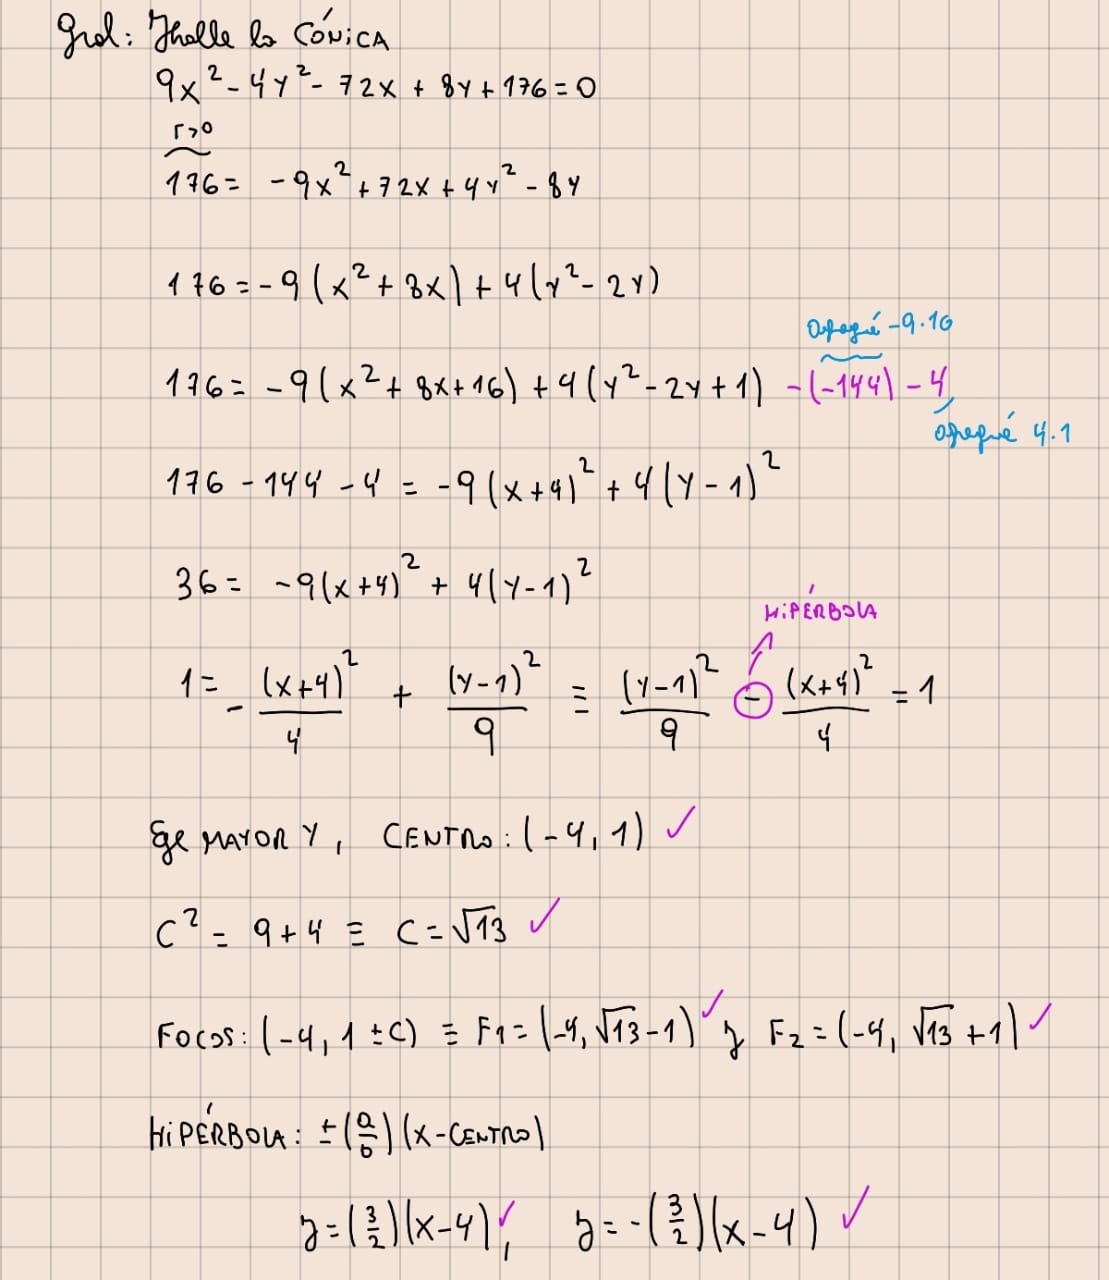 Grol: Halle la CÓNICA
9x² - 4y² - 72x + 8y + 176 = 0
r>0
176 = -9x² + 72x + 4y² - 8y
176 = -9(x² + 8x) + 4(y² - 2y)
agregué -9.16
176 = -9(x² + 8x + 16) + 4(y² - 2y + 1) -(-144) - 4
agregué 4.1
176 - 144 - 4 = -9(x+4)² + 4(y-1)²
36 = -9(x+4)² + 4(y-1)²
HIPÉRBOLA
1 = - (x+4)²/4 + (y-1)²/9 ≡ (y-1)²/9 - (x+4)²/4 = 1
Eje MAYOR Y, CENTRO: (-4, 1) ✓
C² = 9+4 ≡ C = √13 ✓
FOCOS: (-4, 1 ± C) ≡ F1 = (-4, √13 - 1) ✓ y F2 = (-4, √13 + 1) ✓
HIPÉRBOLA: ± (a/b)(x - CENTRO)
y = (3/2)(x-4) ✓, y = -(3/2)(x-4) ✓